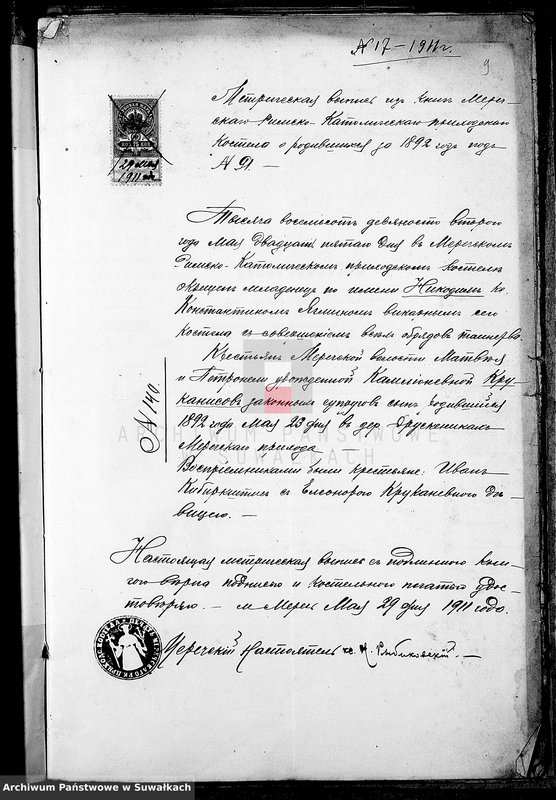 № 17 – 1911 г.
9
Метрическая выпись изъ книгъ Мере-
скаго Римско-Католическаго приходскаго
костела о родившихся за 1892 годъ подъ
№ 91. –
29 мая
1911
Тысяча восемьсотъ девяносто второго
года Мая двадцать пятаго дня въ Меречскомъ
Римско-Католическомъ приходскомъ костелѣ
окрещенъ младенецъ по имени Никодимъ кс.
Константиномъ викарнымъ сего
костела съ совершеніемъ всѣхъ обрядовъ таинства.
Крестьянъ Меречской волости Матвѣя
и Петронели урожденной Кру-
канисовъ законныхъ супруговъ сынъ родившійся
1892 года Мая 23 дня въ дер. Друскеникахъ
Меречскаго прихода
№ 140.
Воспріемниками были крестьяне: Иванъ
съ Елеонорою Крукановною дѣ-
вицею. –
Настоящая метрическая выпись съ подлинною кни-
гою вѣрна подписью и костельною печатью удо-
стовѣряю. – м. Меречъ Мая 29 дня 1911 года.
Меречскій Настоятель кс.
ARCHIWUM PAŃSTWOWE
SUWAŁKACH
Archiwum Państwowe w Suwałkach